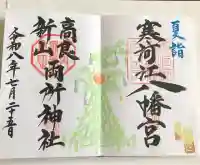 夏詣
寒河江八幡宮
高良
新山両所神社
令和八年七月二十五日